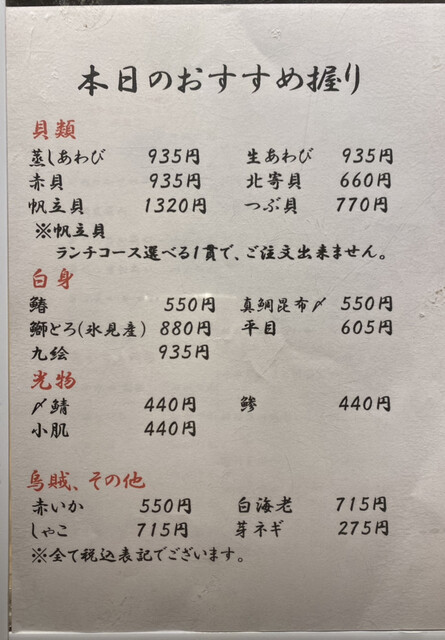 本日のおすすめ握り
貝類
蒸しあわび 935円 生あわび 935円
赤貝 935円 北寄貝 660円
帆立貝 1320円 つぶ貝 770円
※帆立貝
ランチコース選べる1貫で、ご注文出来ません。
白身
鰆 550円 真鯛昆布〆 550円
鰤とろ(氷見産) 880円 平目 605円
九絵 935円
光物
〆鯖 440円 鯵 440円
小肌 440円
烏賊、その他
赤いか 550円 白海老 715円
しゃこ 715円 芽ネギ 275円
※全て税込表記でございます。